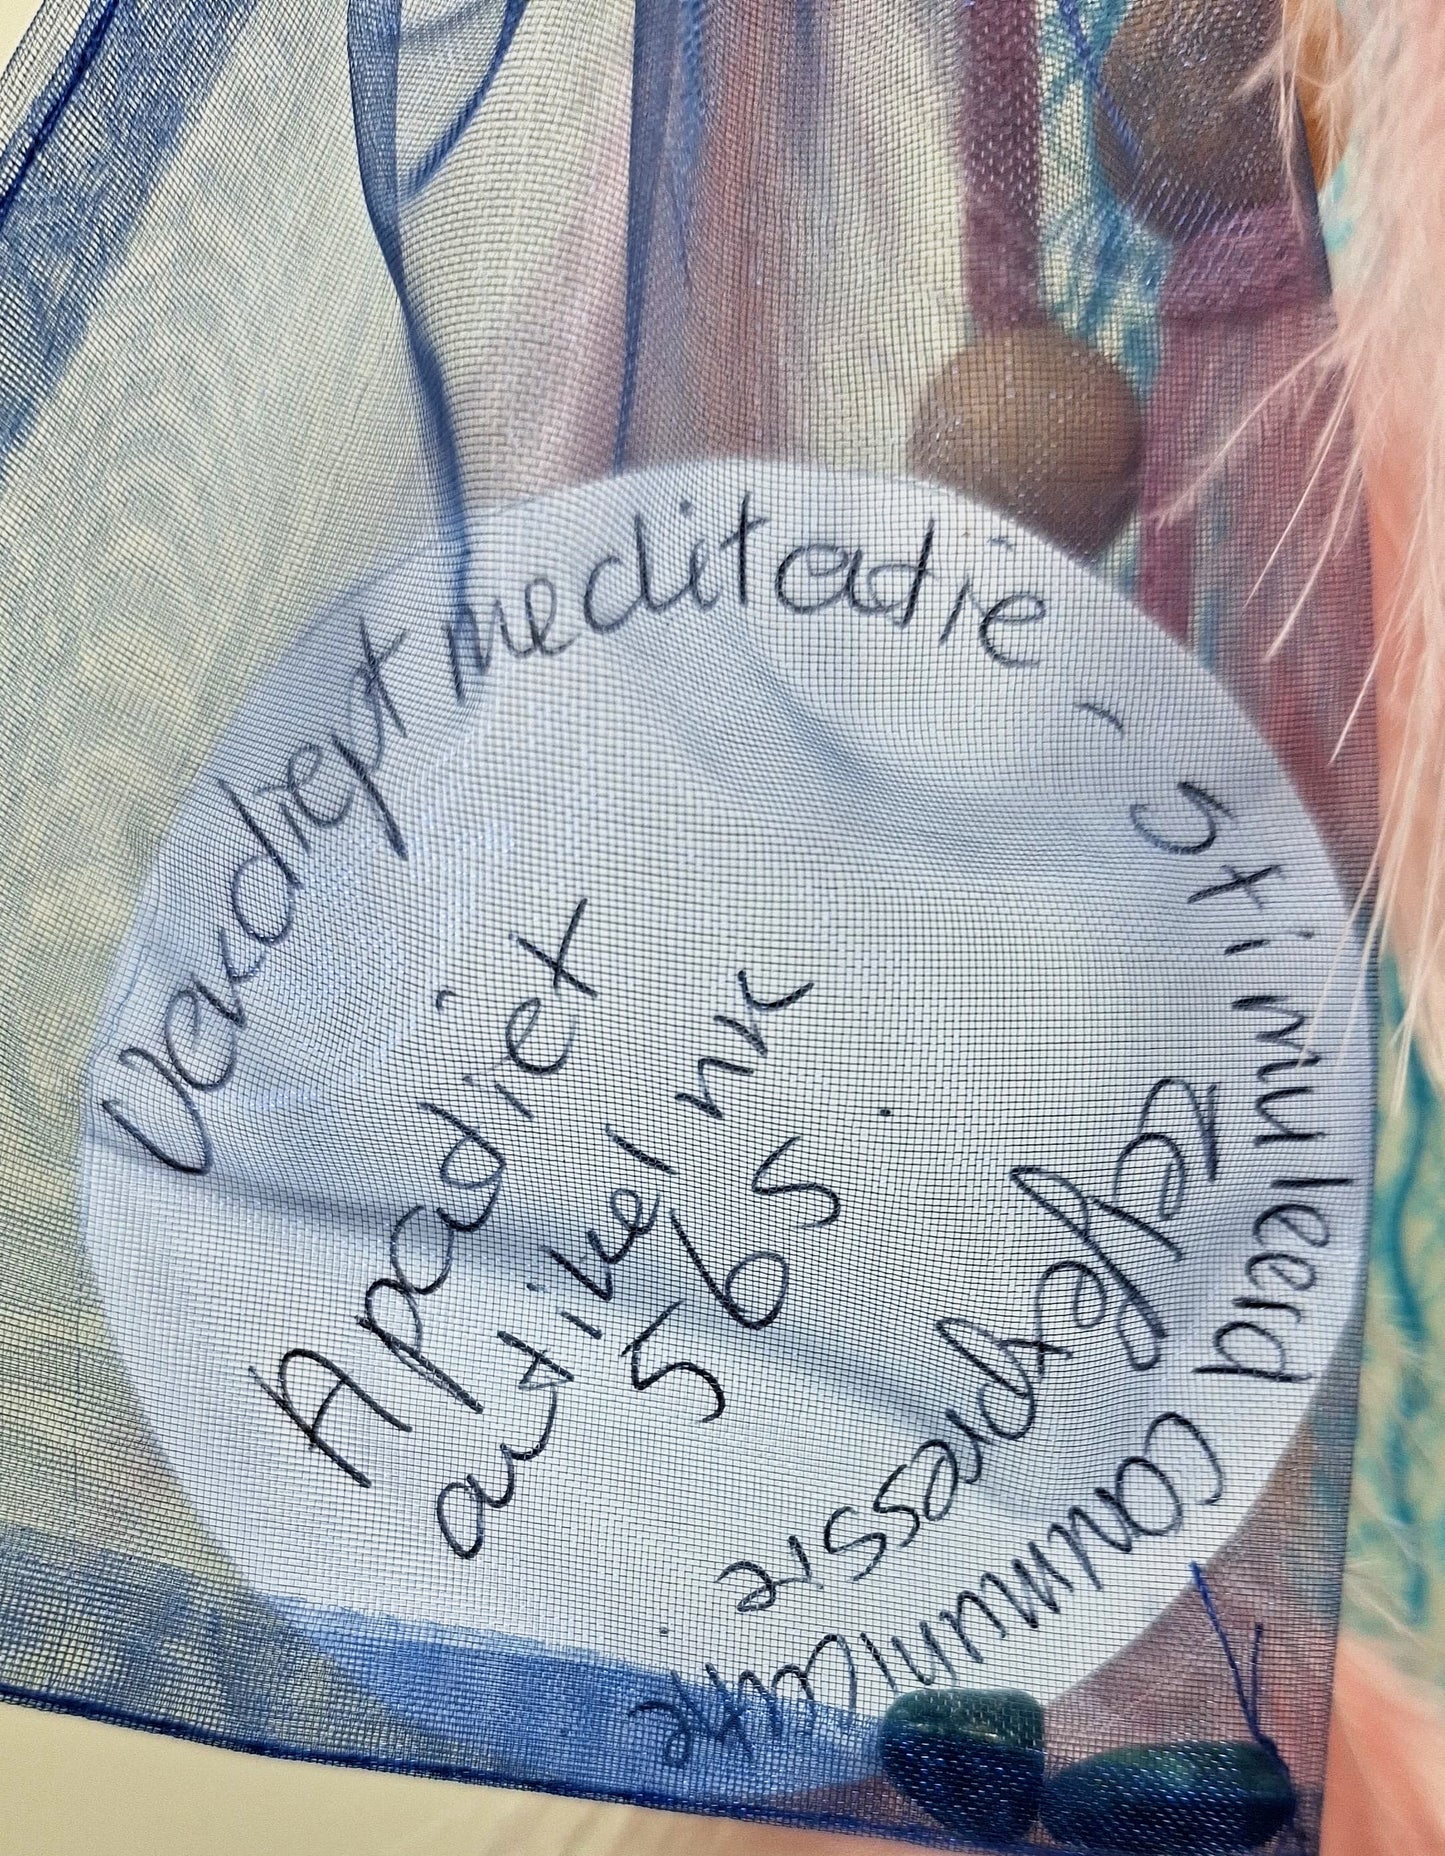 Verdiept meditatie, stimuleerd
communicatie
zelfexpressie
Apatiet
artikel nr
565